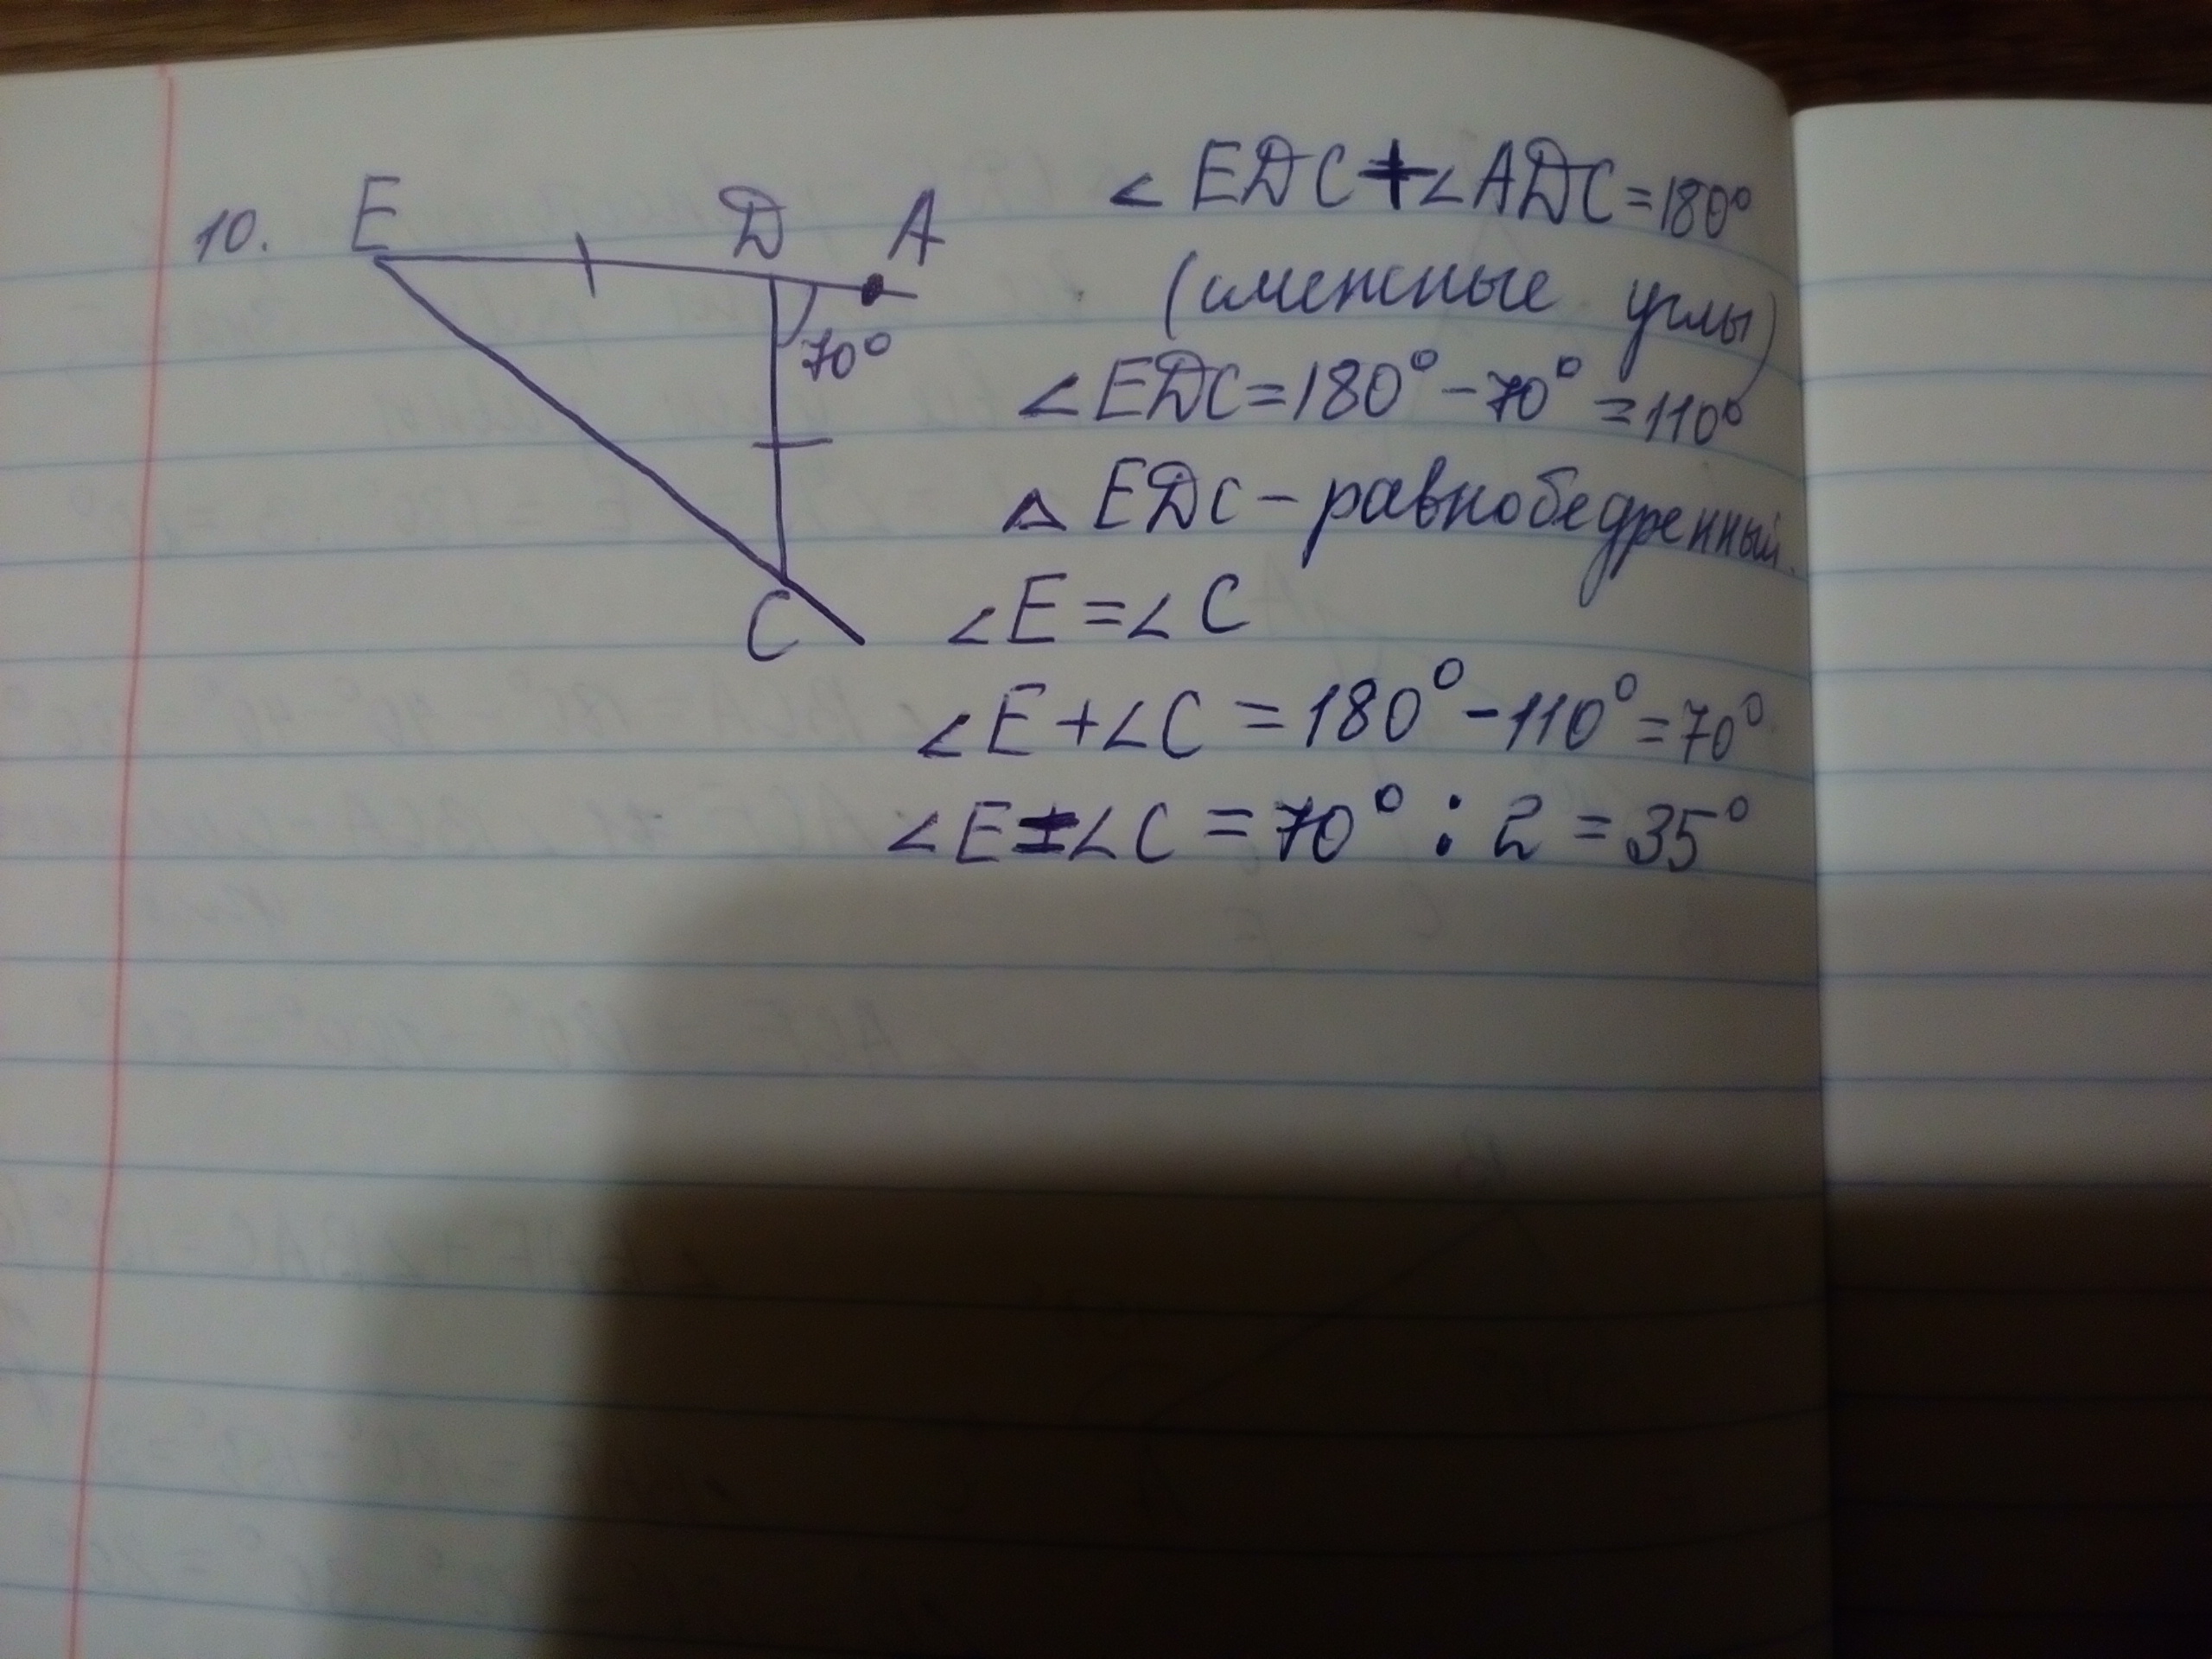 10.
E
D
A
70°
C
∠EDC+∠ADC=180°
(смежные углы)
∠EDC=180°-70°=110°
△EDC-равнобедренный.
∠E=∠C
∠E+∠C=180°-110°=70°
∠E=∠C=70°:2=35°